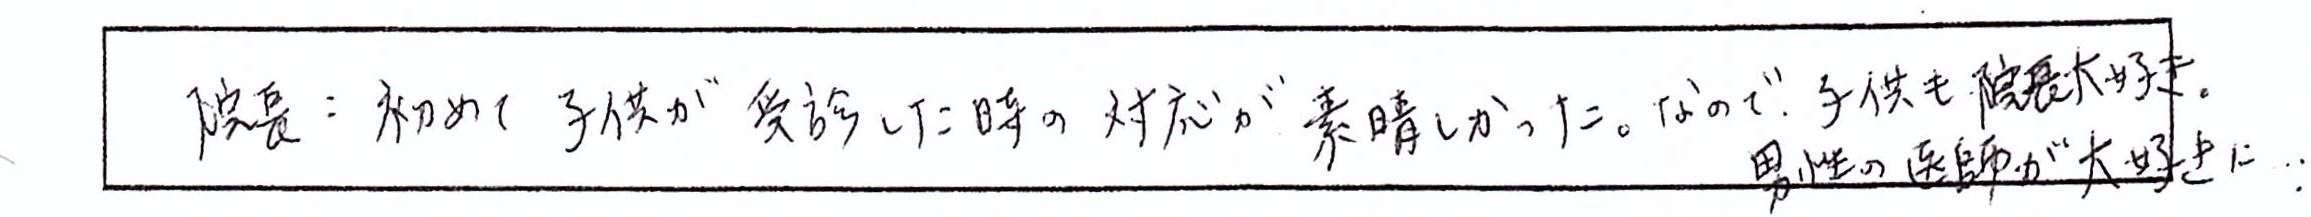 院長：初めて子供が受診した時の対応が素晴しかった。なので、子供も院長大好き。
男性の医師が大好きに…